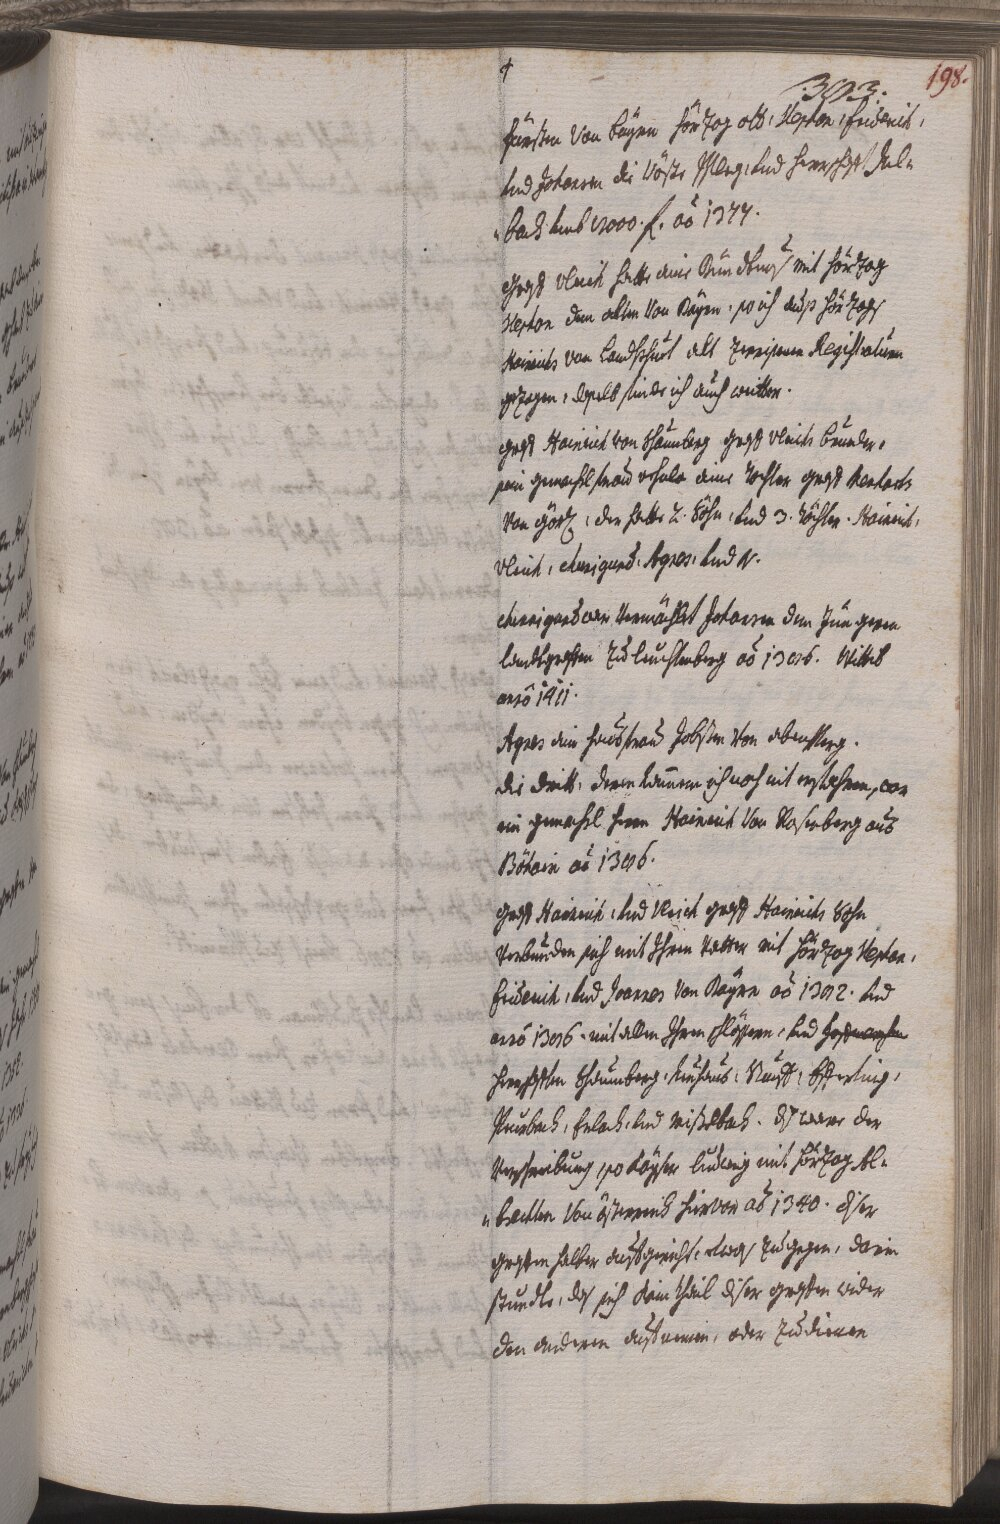 198.
303.
fürsten Von Bayrn Hörtzog ott, Stephan, friderich,
und Johannen die Vöste und herrschafft Jul-
bach umb 12000. f. aō 1377.
Graff Ulrich hatte eine Pündtnus mit Hörtzog
Stephan dem alten Von Bayrn, so ich auß Hörtzogs
Hainrich von Landtshuet alt zerrissnen Registraturn
getzogen, deßhalb finde ich auch weitter.
Graff Hainrich von Schaunberg Graff Ulrichs bruder,
sein gemachl fraw Ursula eine Tochter graff Mainharts
Von Görtz, der hatte 2. Söhn, und 3. Töchter. Hainrich,
Ulrich, Kunigund, Agnes, und N.
Kunigund war Vermählet Johannen dem Jüngeren
landtgraffen zu leuchtenberg aō 1386. Wittib
anno 1411.
Agnes eine haußfraw Jobsten Von abensperg.
die dritt, deren Namen ich noch nit erfahren, war
ein gemachl herrn Hainrich Von Rosenberg aus
Böhaim aō 1386.
Graff Hainrich, und Ulrich graff Hainrichs Sohn
Verbunden sich mit Ihrem Vatter mit Hörtzog Stephan,
friderich, und Joannes Von Bayrn aō 1382. und
anno 1386. mit allen Ihren schlössern, und
herrschafften Schaumberg, Neuhaus, Stauff, Efferding,
Peurbach, Erlach, und Mistlbach. diß ware der
Verschreibung so Kayser ludwig mit Hörtzog Al-
brechten Von österreich hievor aō 1340. diser
graffen halber aufgericht, etwas zu gegen, darin
stundte, das sich kein thail diser graffen wider
den anderen annemen, oder zu dienen